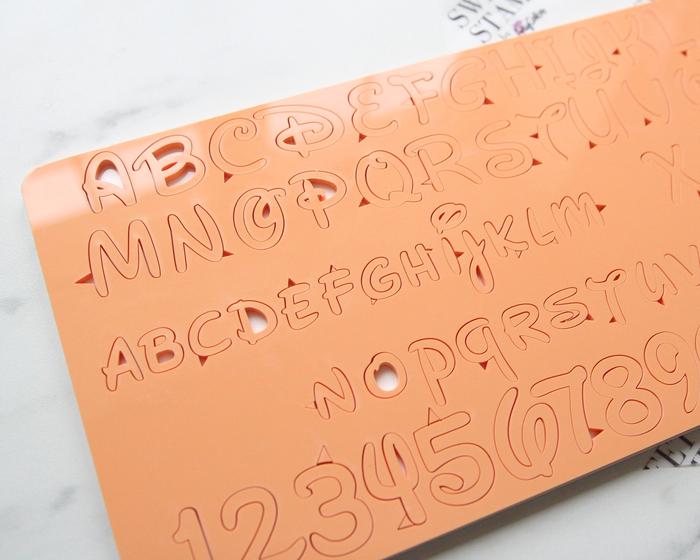 SW
STAM
ABCDEFGHIJKL
MNOPQRSTUV
X
ABCDEFGHIJKLM
NOPQRSTUV
123456789